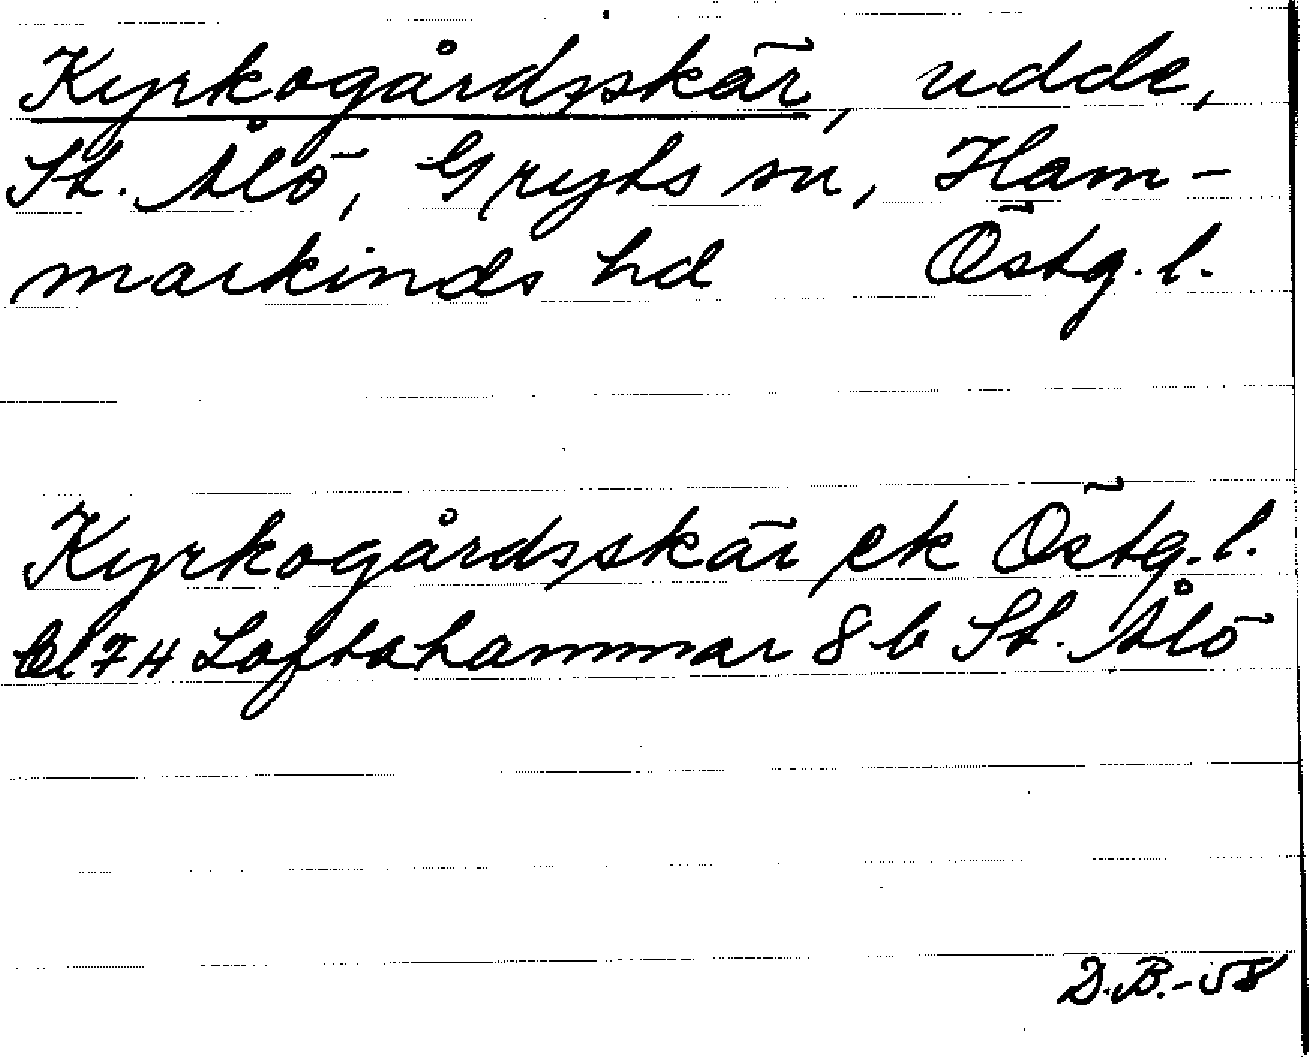 Kyrkogårdsskär, udde,
St. Ålö, Gryts sn, Ham-
markinds hd Östg. l.
Kyrkogårdsskär ek Östg. l.
bl 7 H Loftahammar 8 b St. Ålö
D.B.-58